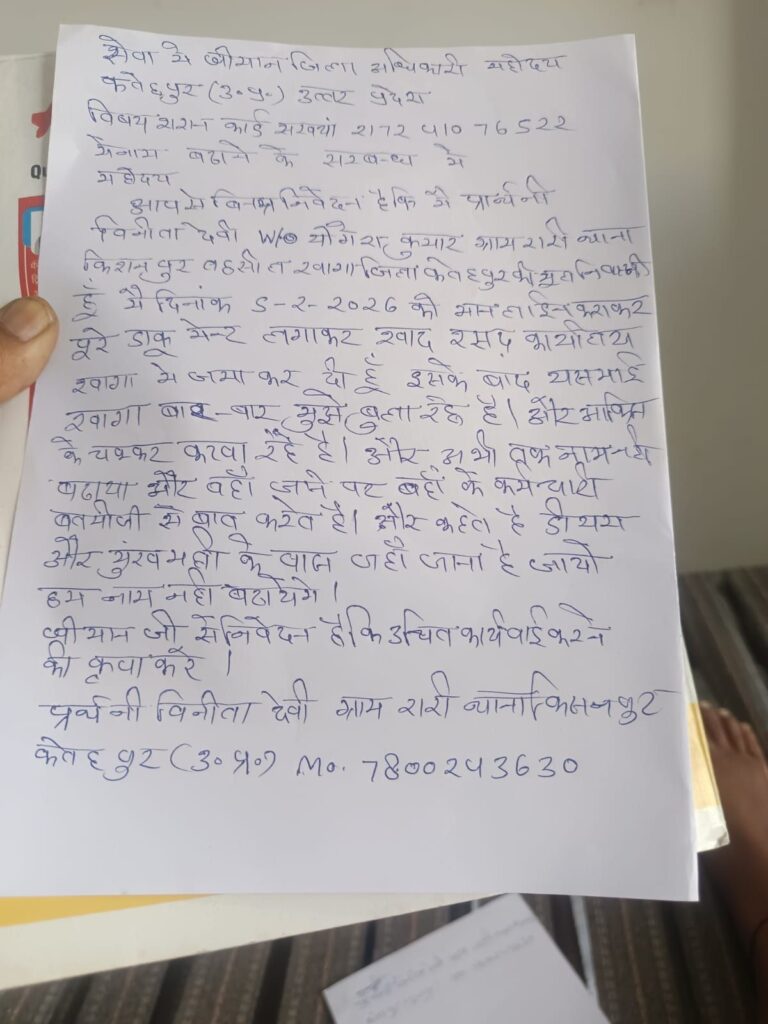 सेवा मे श्रीमान जिला अधिकारी महोदय
फतेहपुर (उ०प्र०) उत्तर प्रदेश
विषय राशन कार्ड सख्यां 2172 410 76522
मेनाम बढाने के सम्बन्ध मे
महोदय
आप से विनम्र निवेदन है कि मै प्रार्थनी
विनीता देवी W/o योगेश कुमार ग्राम रारी थाना
किशनपुर तहसील खागा जिला फतेहपुर की मूल निवासी
हूँ मै दिनांक 5-2-2026 को आनलाईन कराकर
पूरे डाकूमेन्ट लगाकर खाद रसद कार्यालय
खागा मे जमा कर दी हूँ इसके बाद यसआई
खागा बार-बार मुझे बुला रहे है। और आफिस
के चक्कर कटवा रहे है। और अभी तक नाम नही
बढाया और वहाँ जाने पर वहाँ के कर्मचारी
बतमीजी से बात करते है। और कहते है डीयम
और मुंख्यमंत्री के पास जहाँ जाना है जायो
हम नाम नही बढायेगे।
श्रीमान जी से निवेदन है कि उचित कार्यवाई करने
की कृपा करे।
प्रार्थनी विनीता देवी ग्राम रारी थाना किसनपुर
फतेहपुर (उ०प्र०) Mo. 7800243630
Qu